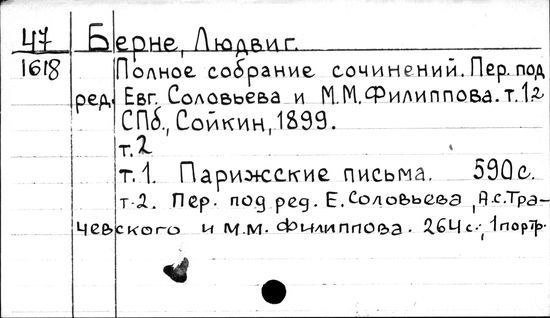 47 Берне, Людвиг.
1618 Полное собрание сочинений. Пер. под
ред. Евг. Соловьева и М.М.Филиппова. т.12
СПб., Сойкин, 1899.
т.2
т.1. Парижские письма. 590 с.
т.2. Пер. под ред. Е.Соловьева, А.С.Тра-
чевского и М.М. Филиппова. 264 с., 1 портр.